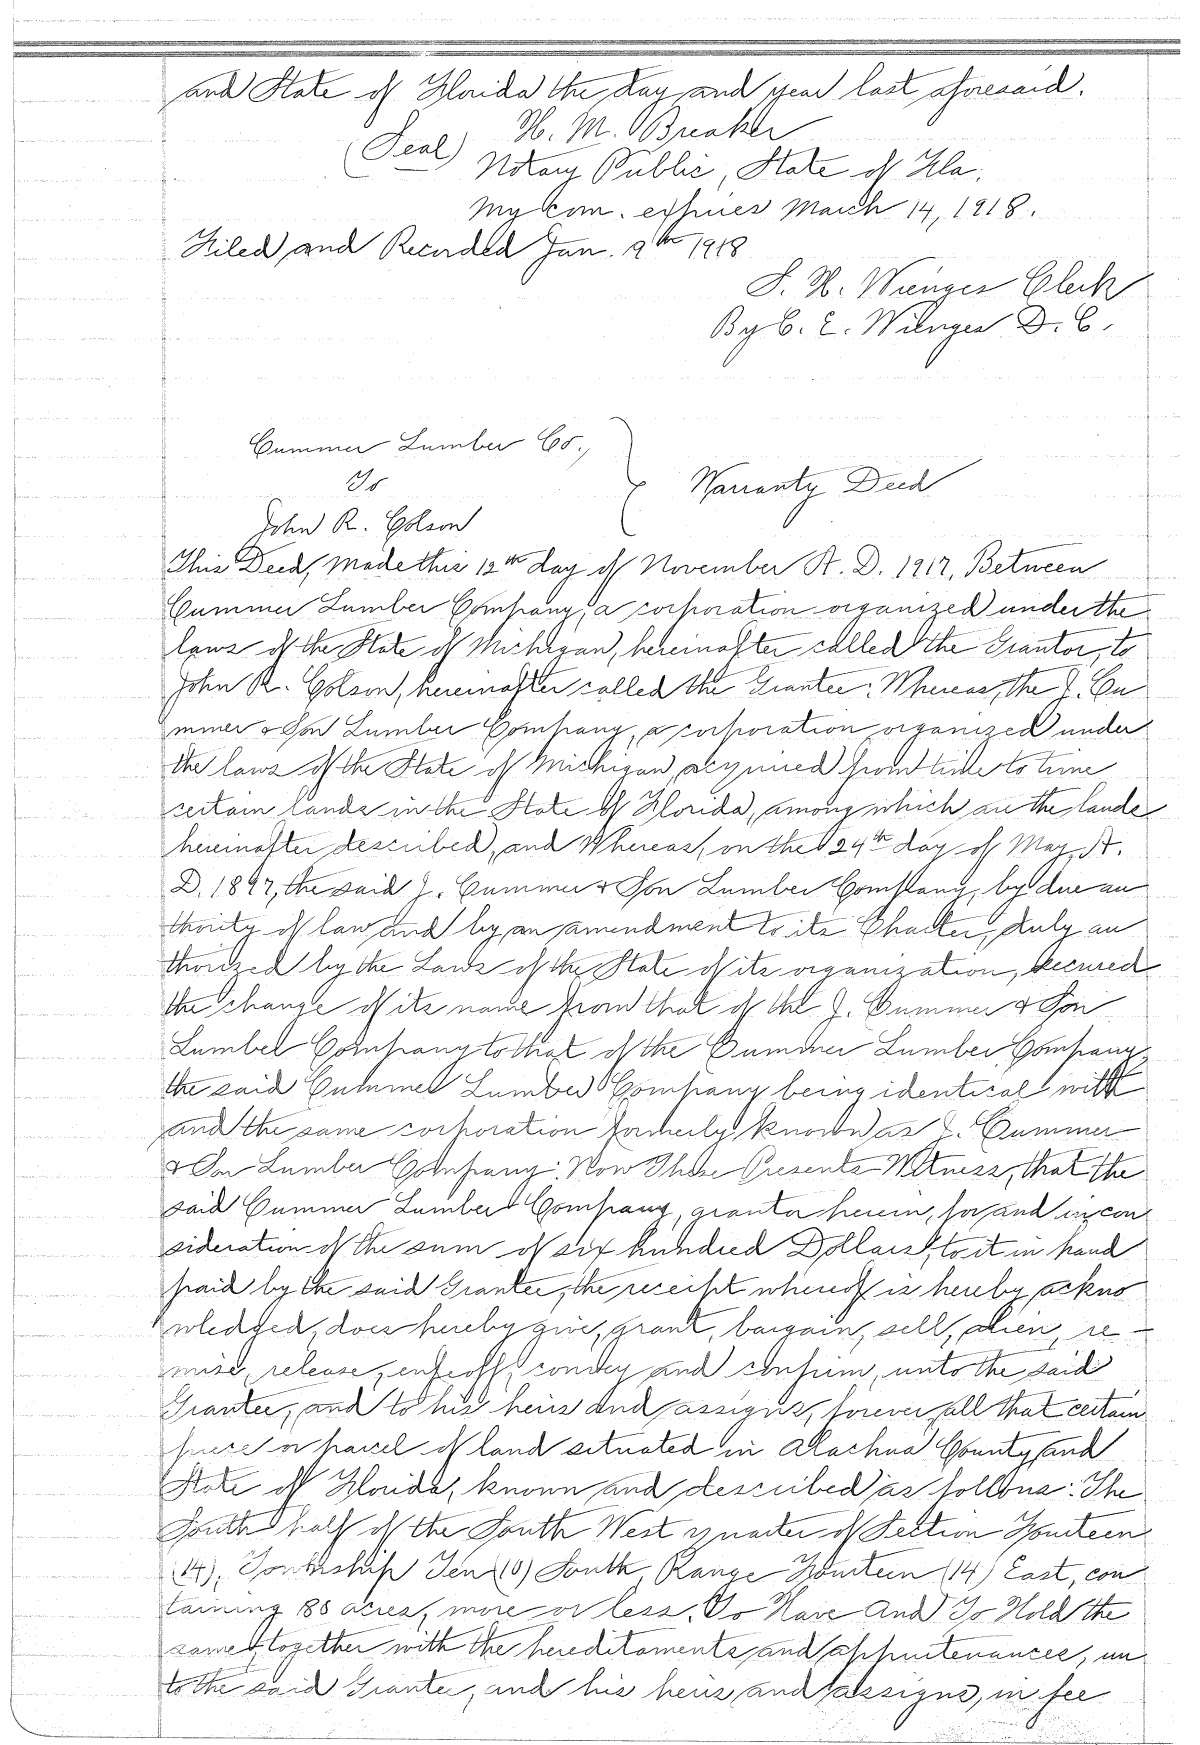 and State of Florida the day and year last aforesaid.
(Seal) H. M. Breaker
Notary Public, State of Fla.
My com. expires March 14, 1918.
Filed and Recorded Jan. 9th 1918
S. H. Wienges Clerk
By C. E. Wienges D. C.
Cummer Lumber Co.,
To
John R. Colson
Warranty Deed
This Deed, Made this 12th day of November A. D. 1917, Between
Cummer Lumber Company, a corporation organized under the
laws of the State of Michigan, hereinafter called the Grantor, to
John R. Colson, hereinafter called the Grantee: Whereas, the J. Cu
mmer & Son Lumber Company, a corporation organized under
the laws of the State of Michigan acquired from time to time
certain lands in the State of Florida, among which are the lands
hereinafter described, and Whereas, on the 24th day of May, A.
D. 1897, the said J. Cummer & Son Lumber Company, by due au
thority of law and by an amendment to its Charter, duly au
thorized by the Laws of the State of its organization, secured
the change of its name from that of the J. Cummer & Son
Lumber Company to that of the Cummer Lumber Company,
the said Cummer Lumber Company being identical with
and the same corporation formerly known as J. Cummer
& Son Lumber Company: Now These Presents Witness, that the
said Cummer Lumber Company, grantor herein, for and in con
sideration of the sum of six hundred Dollars, to it in hand
paid by the said Grantee, the receipt whereof is hereby ackno
wledged, does hereby give, grant, bargain, sell, alien, re-
mise, release, enfeoff, convey and confirm, unto the said
Grantee, and to his heirs and assigns, forever, all that certain
piece or parcel of land situated in Alachua County and
State of Florida, known and described as follows: The
South half of the South West quarter of Section Fourteen
(14), Township Ten (10) South, Range Fourteen (14) East, con
taining 80 acres, more or less. To Have And To Hold the
same, together with the hereditaments and appurtenances, un
to the said Grantee, and his heirs and assigns, in fee